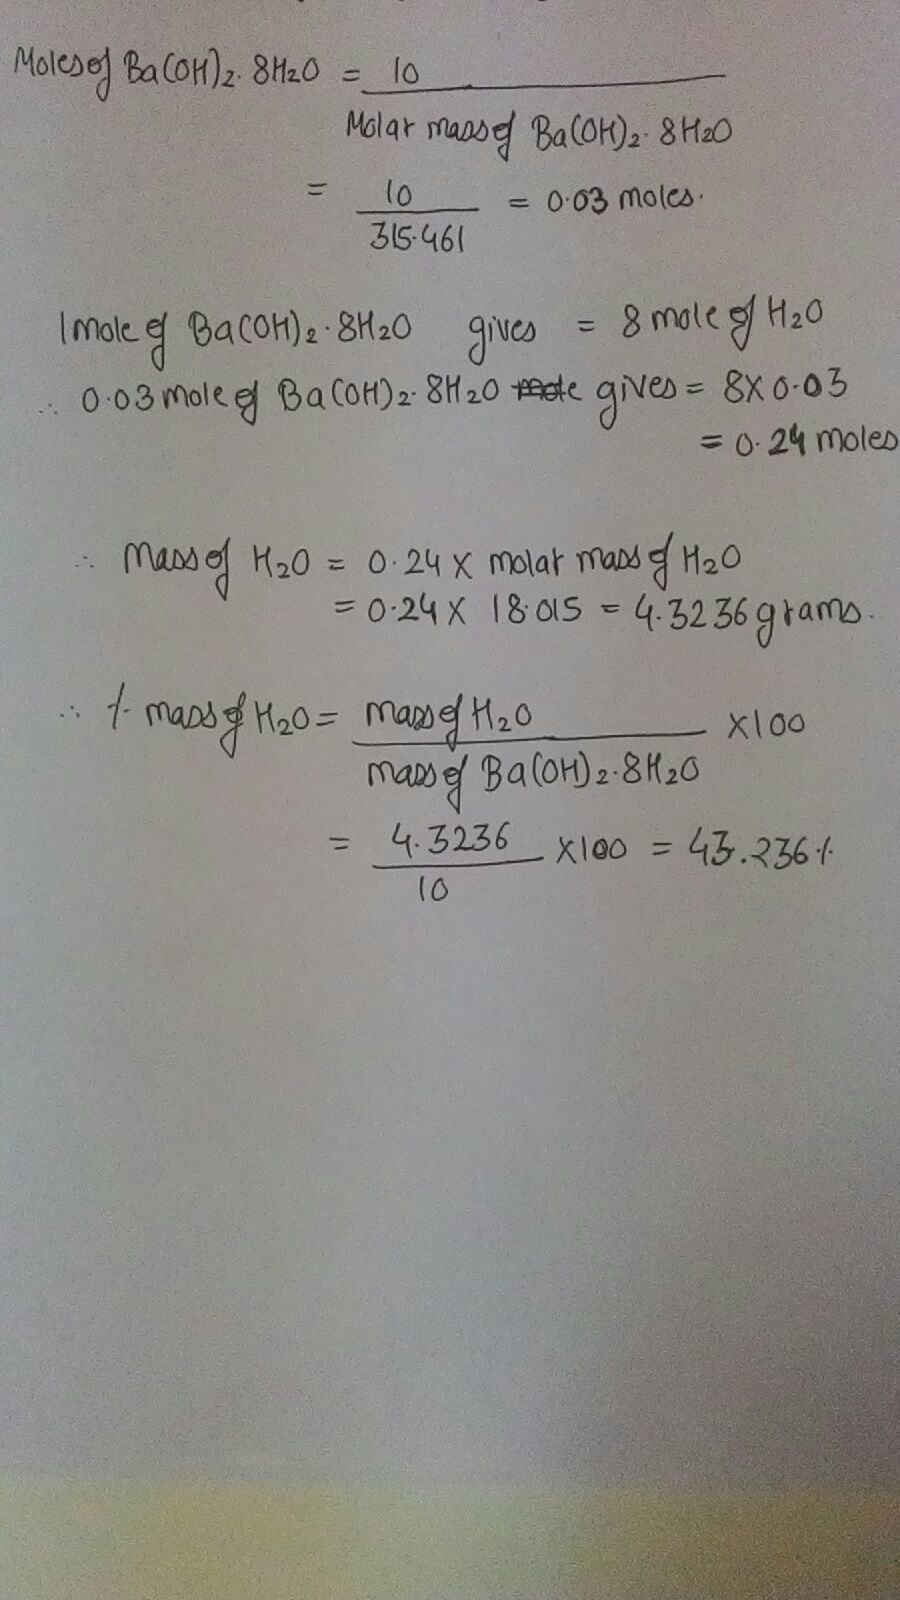 Moles of Ba(OH)2. 8H2O = 10
Molar mass of Ba(OH)2. 8H2O
= 10 = 0.03 moles.
315.461
1 mole of Ba(OH)2.8H2O gives = 8 mole of H2O
∴ 0.03 mole of Ba(OH)2.8H2O gives = 8X0.03
= 0.24 moles
∴ Mass of H2O = 0.24 X molar mass of H2O
= 0.24 X 18.015 = 4.3236 grams.
∴ % mass of H2O = mass of H2O X100
mass of Ba(OH)2.8H2O
= 4.3236 X100 = 43.236%
10